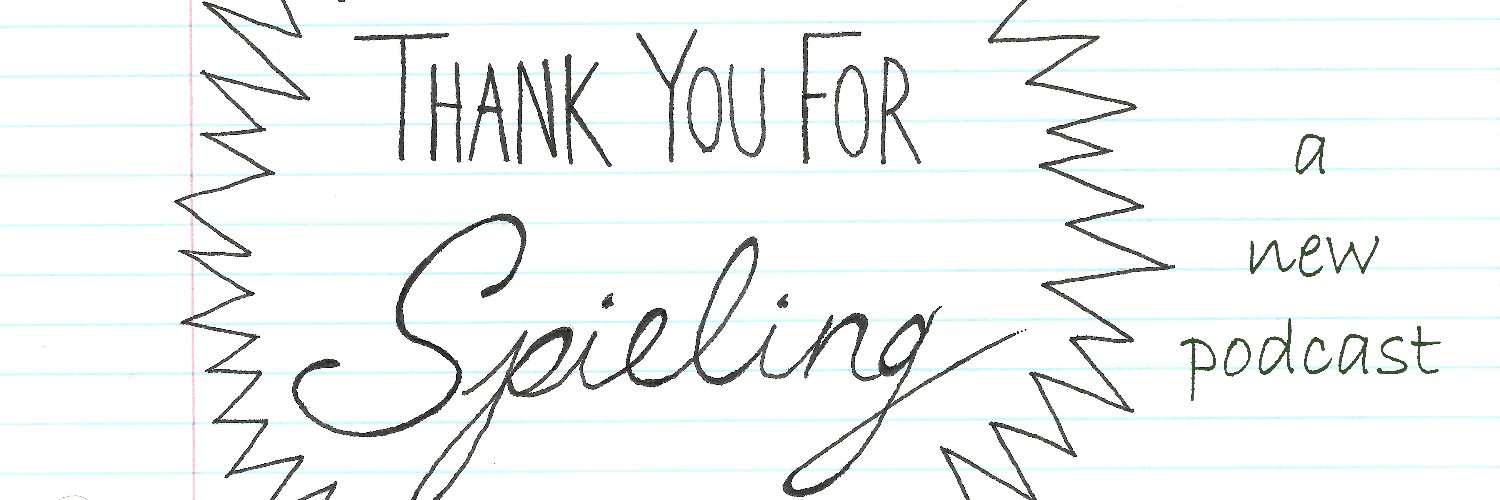 THANK YOU FOR
Spieling
a
new
podcast